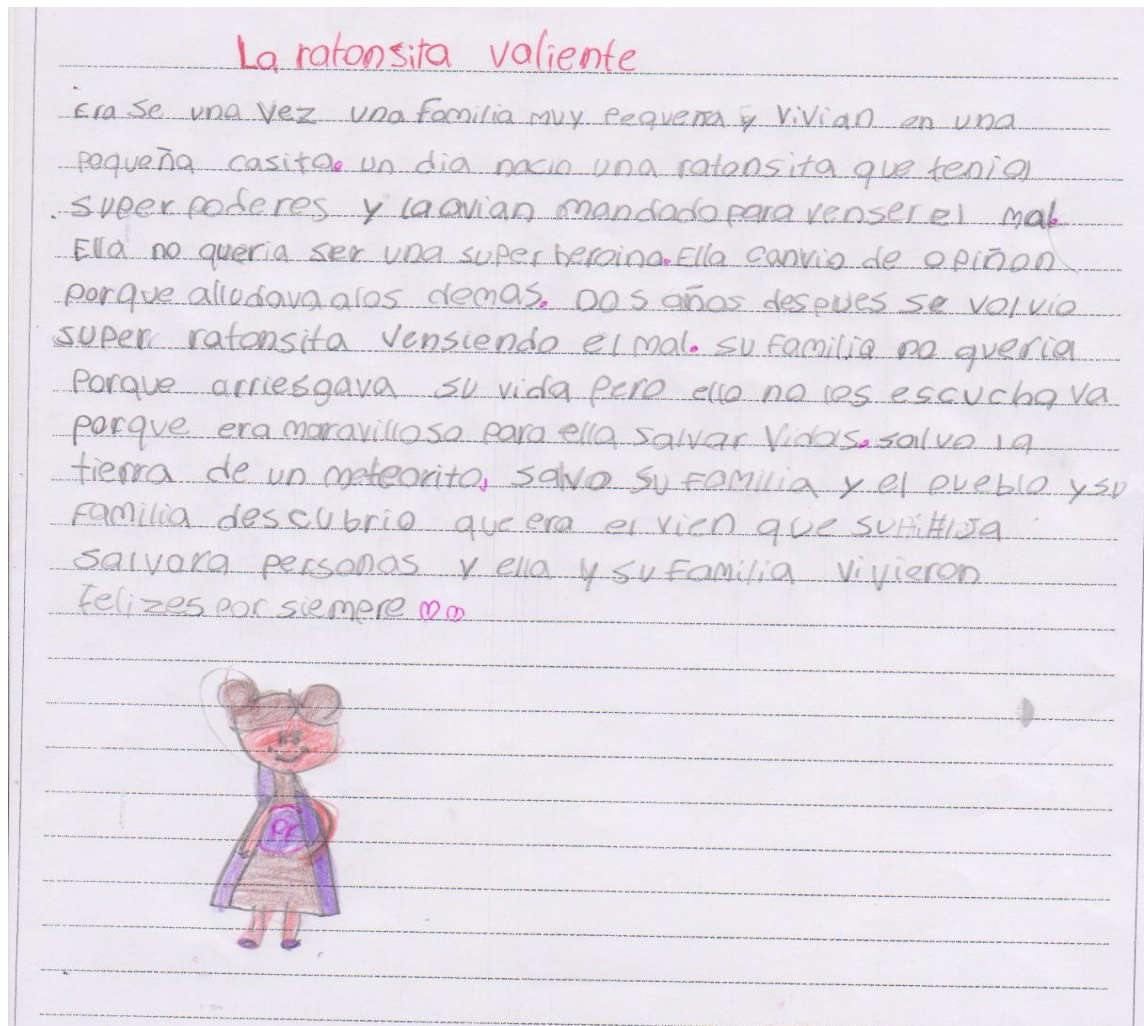 La ratonsita valiente
Era se una vez una familia muy pequeña y vivian en una
pequeña casita. un dia nacio una ratonsita que tenia
super poderes y la avian mandado para venser el mal.
Ella no queria ser una super heroina. Ella canvio de opiñon
porque alludava a los demas. Dos años despues se volvio
super ratonsita vensiendo el mal. su familia no queria
porque arriesgava su vida pero ella no les escuchava
porque era maravilloso para ella salvar vidas. salvo la
tierra de un meteorito, salvo su familia y el pueblo y su
familia descubrio que era el vien que su hija
salvara personas y ella y su familia vivieron
felizes por siempre